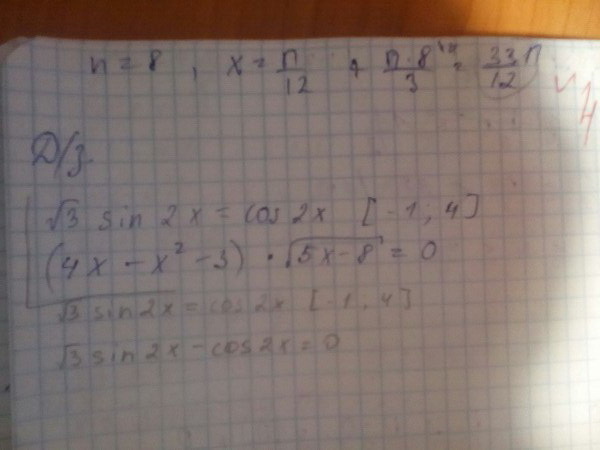 n = 8 , x = π/12 + π·8/3 = 33π/12
Д/з.
√3 sin 2x = cos 2x [-1; 4]
(4x - x² - 3) · √5x-8 = 0
√3 sin 2x = cos 2x [-1; 4]
√3 sin 2x - cos 2x = 0